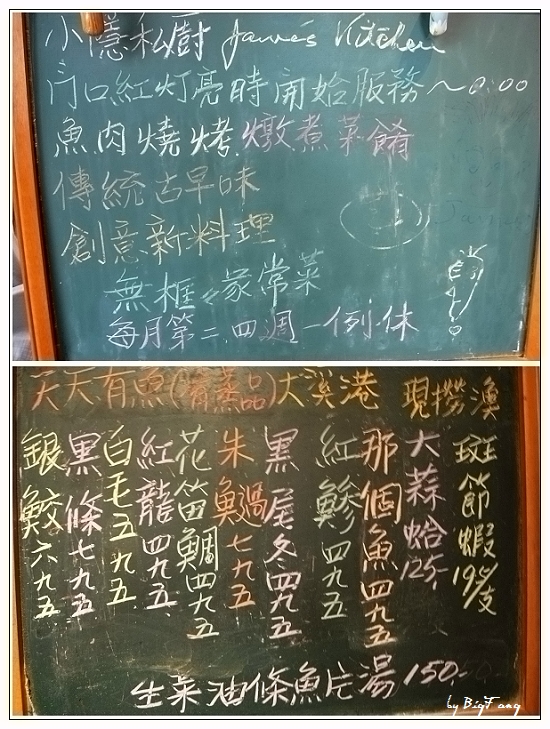 小隱私廚 James Kitchen
門口紅灯亮時開始服務~0:00
魚肉燒烤.燉煮菜餚
傳統古早味
創意新料理
無框々家常菜
每月第二.四週一例休
天天有魚(清蒸品)大溪港 現撈漁
斑節蝦195/支
大蒜蛤125-
那個魚四九五
紅鰺四九五
黑尾冬四九五
朱過七九五
花笛鯛四九五
紅龍四九五
白毛五九五
黑條七九五
銀鮫六九五
生菜油條魚片湯150-
by BigFang